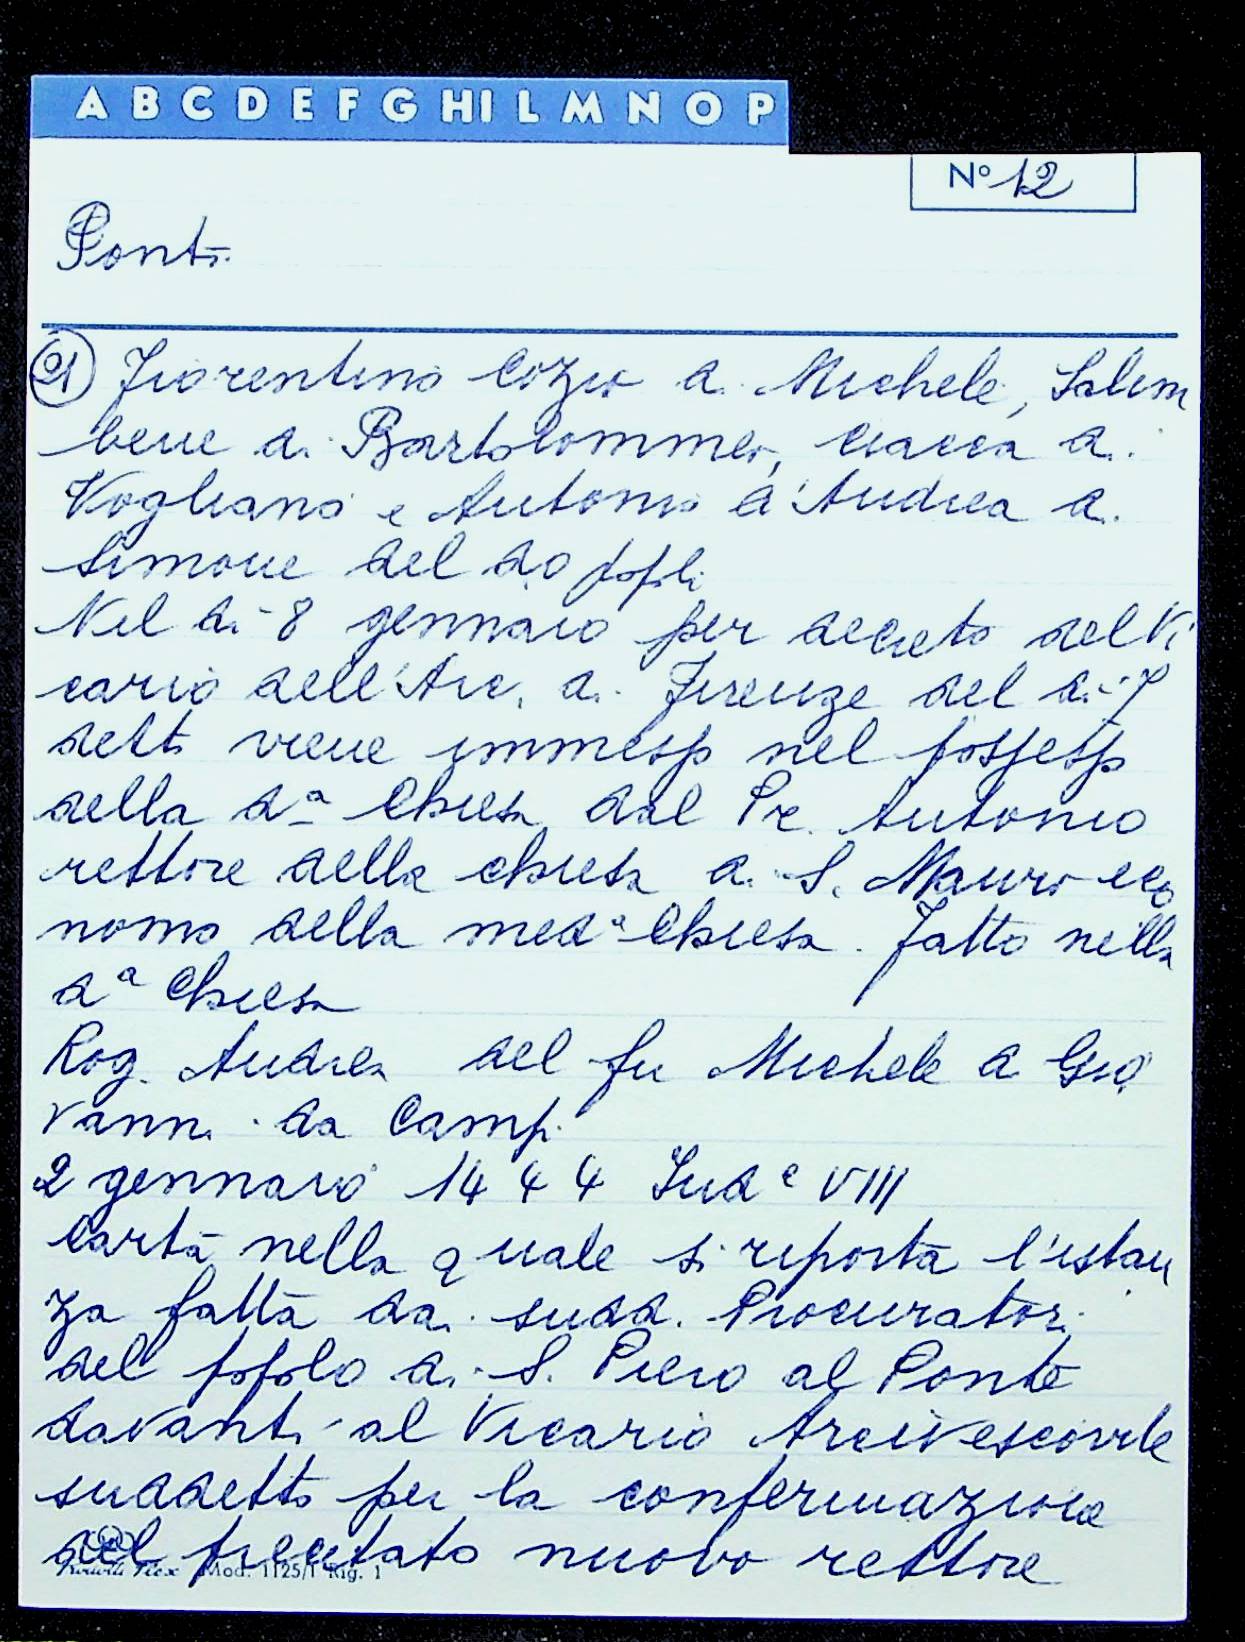 A B C D E F G HI L M N O P
Nº 12
Ponti
21 Fiorentino Cozio di Michele, Salim
bene di Bartolommeo, Ciacca di
Vogliano e Antonio d'Andrea di
Simone del do popli
Nel dì 8 gennaio per decreto del Vi
cario dell'Arc. di Firenze del dì 7
detto viene immesso nel possesso
della dª Chiesa dal Pr. Antonio
rettore della chiesa di S. Mauro eco
nomo della medª Chiesa. Fatto nella
dª Chiesa
Rog. Andrea del fu Michele di Gio
vanni da Campi
2 gennaio 1444 Indᵉ VIII
Carta nella quale si riporta l'istan
za fatta dai sudd. Procuratori
del popolo di S. Piero al Ponte
davanti al Vicario Arcivescovile
suddetto per la confermazione
del precitato nuovo rettore
Mod. 1125/1 Rig. 1